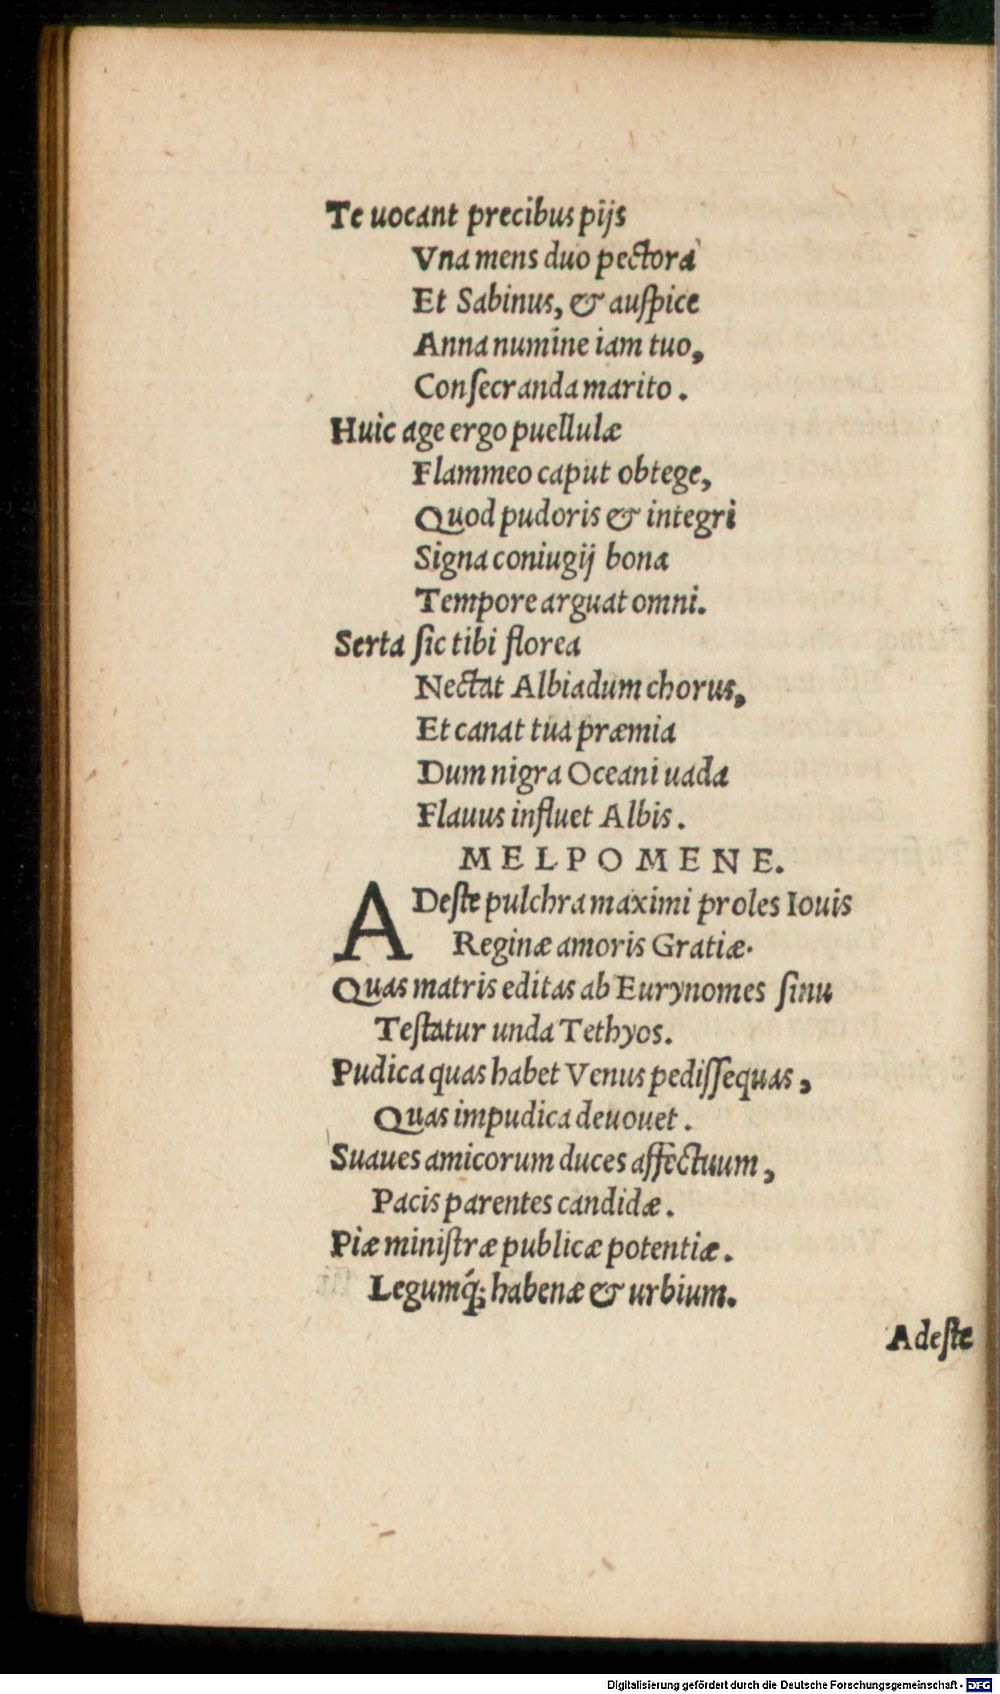 Te uocant precibus pijs
Vna mens duo pectora
Et Sabinus, & auſpice
Anna numine iam tuo,
Conſecranda marito.
Huic age ergo puellulæ
Flammeo caput obtege,
Quod pudoris & integri
Signa coniugij bona
Tempore arguat omni.
Serta ſic tibi florea
Nectat Albiadum chorus,
Et canat tua præmia
Dum nigra Oceani uada
Flauus influet Albis.
MELPOMENE.
ADeſte pulchra maximi proles Iouis
Reginæ amoris Gratiæ.
Quas matris editas ab Eurynomes ſinu
Teſtatur unda Tethyos.
Pudica quas habet Venus pediſſequas,
Quas impudica deuouet.
Suaues amicorum duces affectuum,
Pacis parentes candidæ.
Piæ miniſtræ publicæ potentiæ.
Legumq́; habenæ & urbium.
Adeſte
Digitalisierung gefördert durch die Deutsche Forschungsgemeinschaft - DFG